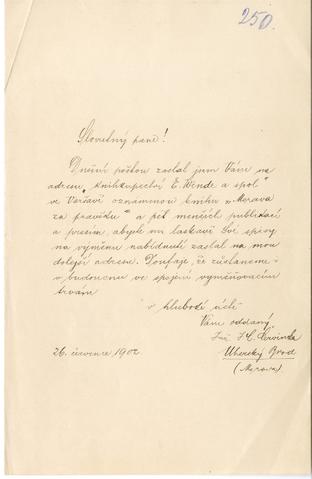 250.
Slovutný pane!
Dnešní poštou zaslal jsem Vám na
adresu „Knihkupectví E. Wende a spol"
ve Varšavě oznámenou knihu „Morava
za pravěku" a pět menších publikací
a prosím, abyste mi laskavě Své spisy
na výměnu nabídnuté zaslal na mou
dolejší adresu. Doufaje, že zůstaneme
v budoucnu ve spojení vyměňovacím
trvám
v hluboké úctě
Vám oddaný
I. L. Červinka
26. července 1902
Uherský Brod
(Morava)